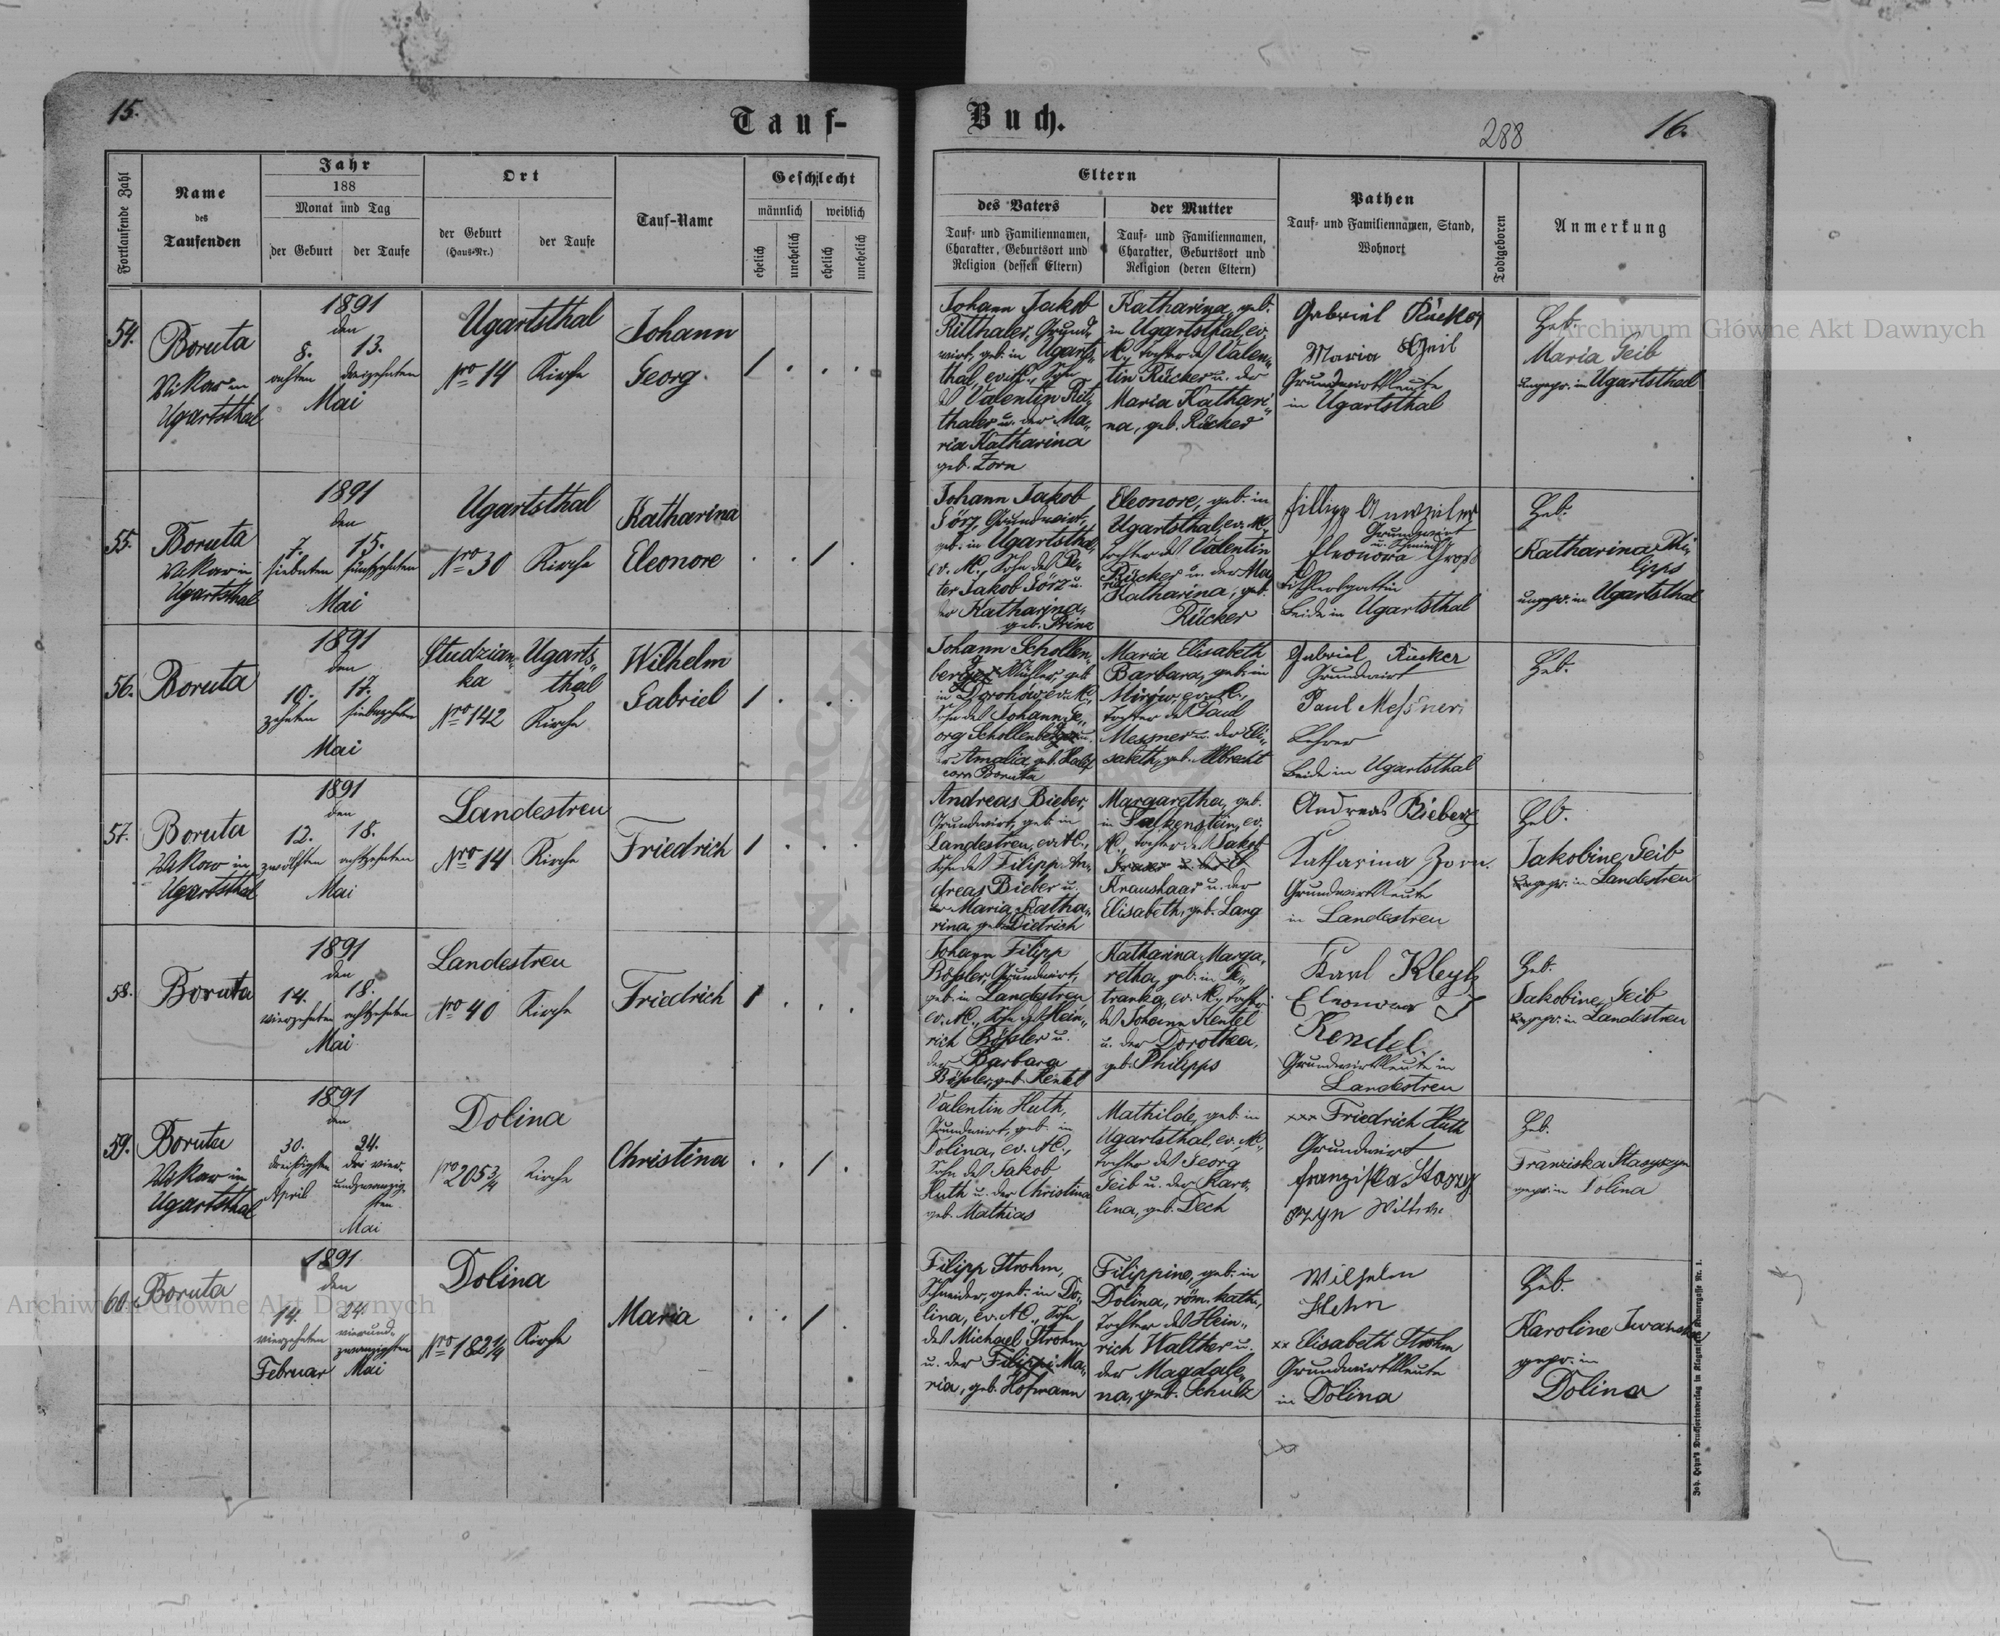 15.
Tauf-
Buch.
288
16.
Fortlaufende Zahl
Name
des
Taufenden
Jahr
188
Monat und Tag
der Geburt
der Taufe
Ort
der Geburt
(Haus-Nr.)
der Taufe
Tauf-Name
Geschlecht
männlich
weiblich
ehelich
unehelich
ehelich
unehelich
Eltern
des Vaters
Tauf- und Familiennamen,
Charakter, Geburtsort und
Religion (dessen Eltern)
der Mutter
Tauf- und Familiennamen,
Charakter, Geburtsort und
Religion (deren Eltern)
Pathen
Tauf- und Familiennamen, Stand,
Wohnort
Todtgeboren
Anmerkung
54.
Boruta
Vikar in
Ugartsthal
1891
den
8. 13.
achten dreizehnten
Mai
Ugartsthal
Nro 14 Kirche
Johann
Georg.
1
Johann Jakob
Ritthaler, Grund-
wirt, geb. in Ugarts-
thal, ev. A.C., Sohn
des Valentin Rit-
thaler u. der Ma-
ria Katharina
geb. Zorn
Katharina, geb.
in Ugartsthal, ev.
A.C., Tochter des Valen-
tin Rücker u. der
Maria Kathari-
na, geb. Rücker
Gabriel Rücker
Maria Geib
Grundwirtsleute
in Ugartsthal
Heb.
Maria Geib
ungepr. in Ugartsthal
55.
Boruta
Vikar in
Ugartsthal
1891
den
7. 15.
siebenten fünfzehnten
Mai
Ugartsthal
Nro 30 Kirche
Katharina
Eleonore
1
Johann Jakob
Görz, Grundwirt,
geb. in Ugartsthal,
ev. A.C., Sohn des Pe-
ter Jakob Görz u.
der Katharina,
geb. Prinz
Eleonore, geb. in
Ugartsthal, ev. A.C.,
Tochter des Valentin
Rücker u. der Maria
Katharina, geb.
Rücker
Fillipp Anweiler
Grundwirt
u. Schmied
Eleonora Gross
Tischlersgattin
Beide in Ugartsthal
Heb.
Katharina Phi-
lipps
ungepr. in Ugartsthal
56.
Boruta
1891
den
10. 17.
zehnten siebzehnten
Mai
Studzian-
ka
Nro 142
Ugarts-
thal
Kirche
Wilhelm
Gabriel
1
Johann Schollen-
berger, Müller, geb.
in Dorohów, ev. A.C.,
Sohn des Johann Ge-
org Schollenberger u.
der Amalia, geb.
corr. Boruta
Maria Elisabeth
Barbara, geb. in
Mirów, ev. A.C.,
Tochter des Paul
Messner u. der Eli-
sabeth, geb. Albrecht
Gabriel Rücker
Grundwirt
Paul Messner
Lehrer
Beide in Ugartsthal
Heb.
57.
Boruta
Vikar in
Ugartsthal
1891
den
12. 18.
zwölften achtzehnten
Mai
Landestreu
Nro 14 Kirche
Friedrich
1
Andreas Bieber,
Grundwirt, geb. in
Landestreu, ev. A.C.,
Sohn des Filipp An-
dreas Bieber u.
der Maria Katha-
rina, geb. Dietrich
Margaretha, geb.
in Falkenstein, ev.
A.C., Tochter des Jakob
Kraushaar u. der
Elisabeth, geb. Lang
Andreas Bieber
Katharina Zorn
Grundwirtsleute
in Landestreu
Heb.
Jakobine Geib
ungepr. in Landestreu
58.
Boruta
1891
den
14. 18.
vierzehnten achtzehnten
Mai
Landestreu
Nro 40 Kirche
Friedrich
1
Johann Filipp
Bösler, Grundwirt,
geb. in Landestreu
ev. A.C., Sohn des Hein-
rich Bösler u.
der Barbara
Bösler, geb. Kentel
Katharina Marga-
retha, geb. in Pe-
tranka, ev. A.C., Tochter
des Johann Kentel
u. der Dorothea,
geb. Philipps
Karl Kleyb
Eleonora
Kendel
Grundwirtsleute in
Landestreu
Heb.
Jakobine Geib
ungepr. in Landestreu
59.
Boruta
Vikar in
Ugartsthal
1891
den
30. 24.
dreißigsten
April
den vier-
undzwanzig-
sten
Mai
Dolina
Nro 205 3/4 Kirche
Christina
1
Valentin Huth,
Grundwirt, geb. in
Dolina, ev. A.C.,
Sohn des Jakob
Huth u. der Christina
geb. Mathias
Mathilde, geb. in
Ugartsthal, ev. A.C.,
Tochter des Georg
Geib u. der Karo-
lina, geb. Dech
xxx Friedrich Huth
Grundwirt
Franziska Stasy
szyn Witwe
Heb.
Franziska Stasyszyn
gepr. in Dolina
60.
Boruta
1891
den
14. 24.
vierzehnten
Februar
vierund-
zwanzigsten
Mai
Dolina
Nro 182 1/4 Kirche
Maria
1
Filipp Strohm,
Schneider, geb. in Do-
lina, ev. A.C., Sohn
des Michael Strohm
u. der Ma-
ria, geb. Hofmann
Filippine, geb. in
Dolina, röm. kath.,
Tochter des Hein-
rich Walther u.
der Magdale-
na, geb. Schulz
Wilhelm
Hehn
xx Elisabeth Strohm
Grundwirtsleute
in Dolina
Heb.
Karoline
gepr. in
Dolina
Archiwum Główne Akt Dawnych
Archiwum Główne Akt Dawnych